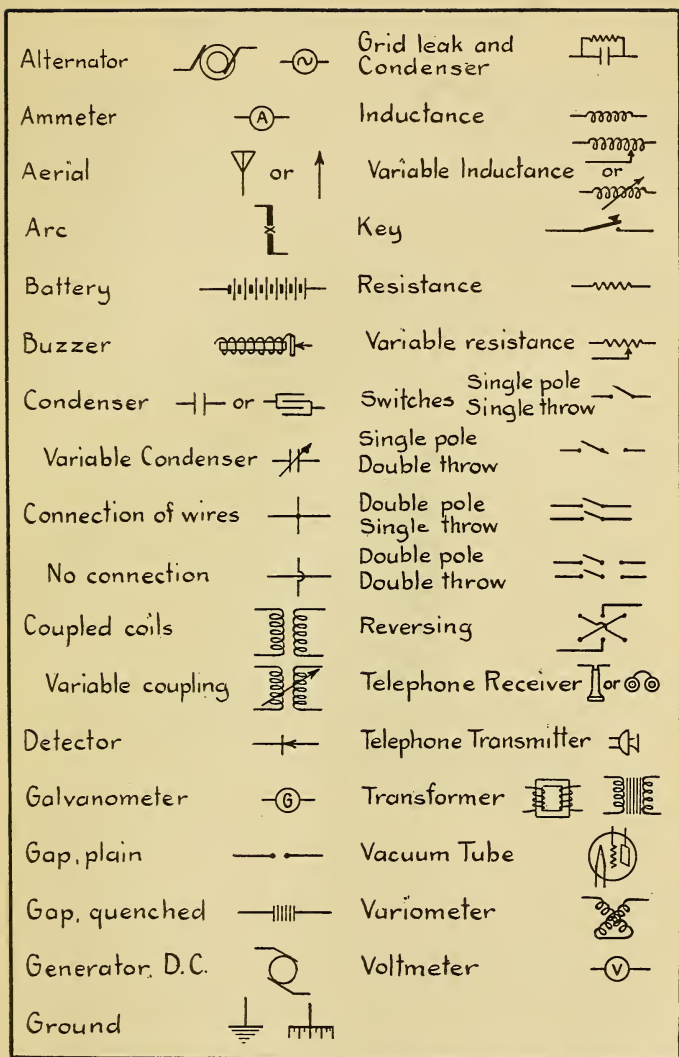 Alternator
Ammeter
A
Aerial or
Arc
Battery
Buzzer
Condenser or
Variable Condenser
Connection of wires
No connection
Coupled coils
Variable coupling
Detector
Galvanometer
G
Gap, plain
Gap, quenched
Generator, D.C.
Ground
Grid leak and
Condenser
Inductance
Variable Inductance or
Key
Resistance
Variable resistance
Switches Single pole
Single throw
Single pole
Double throw
Double pole
Single throw
Double pole
Double throw
Reversing
Telephone Receiver or
Telephone Transmitter
Transformer
Vacuum Tube
Variometer
Voltmeter
V